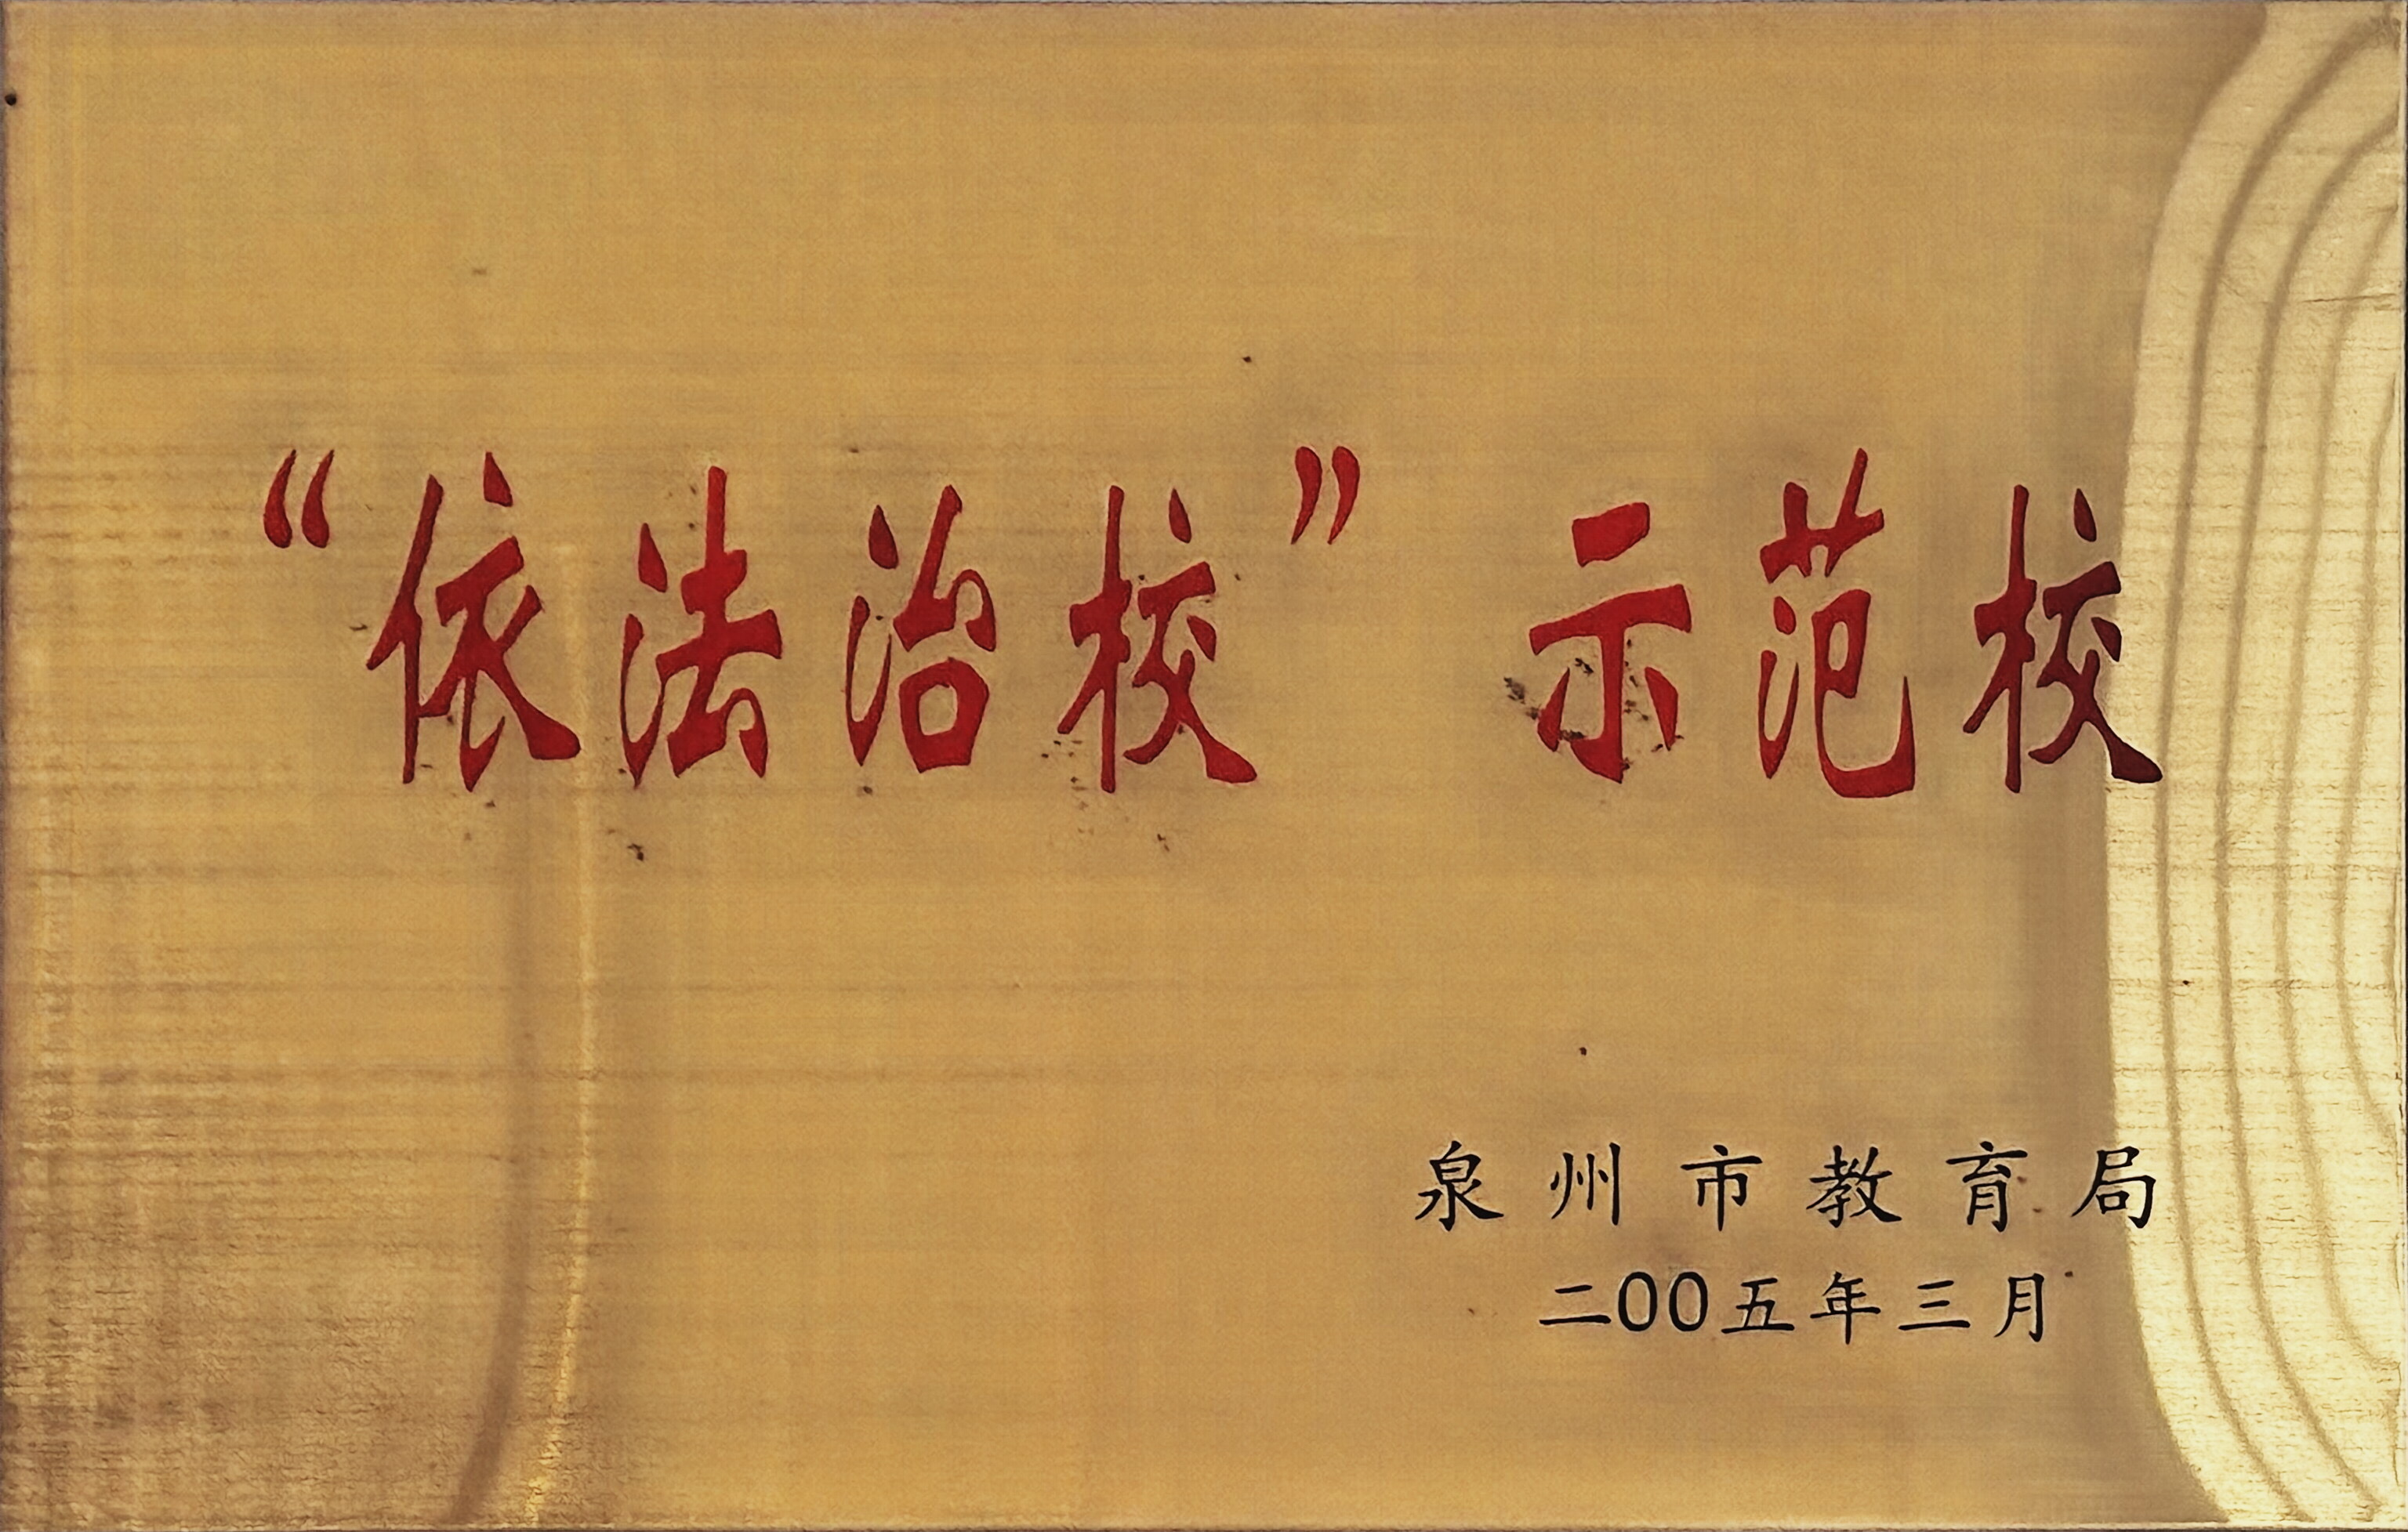 “依法治校” 示范校
泉州市教育局
二00五年三月